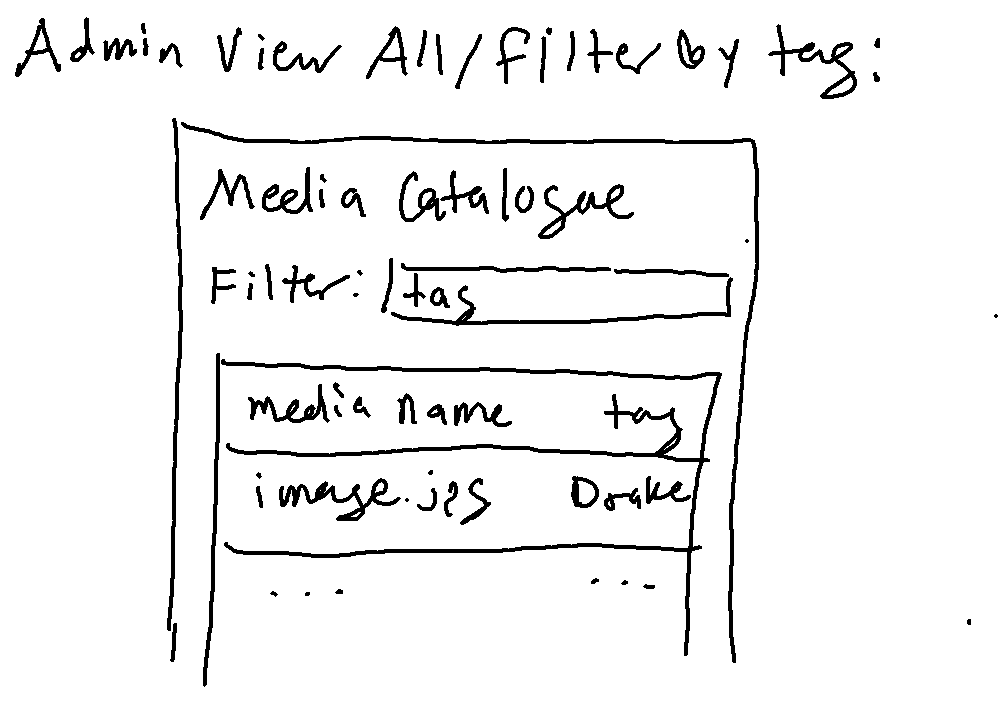 Admin View All/filter by tag:
Media Catalogue
Filter: tag
media name tag
image.jpg Drake
... ...